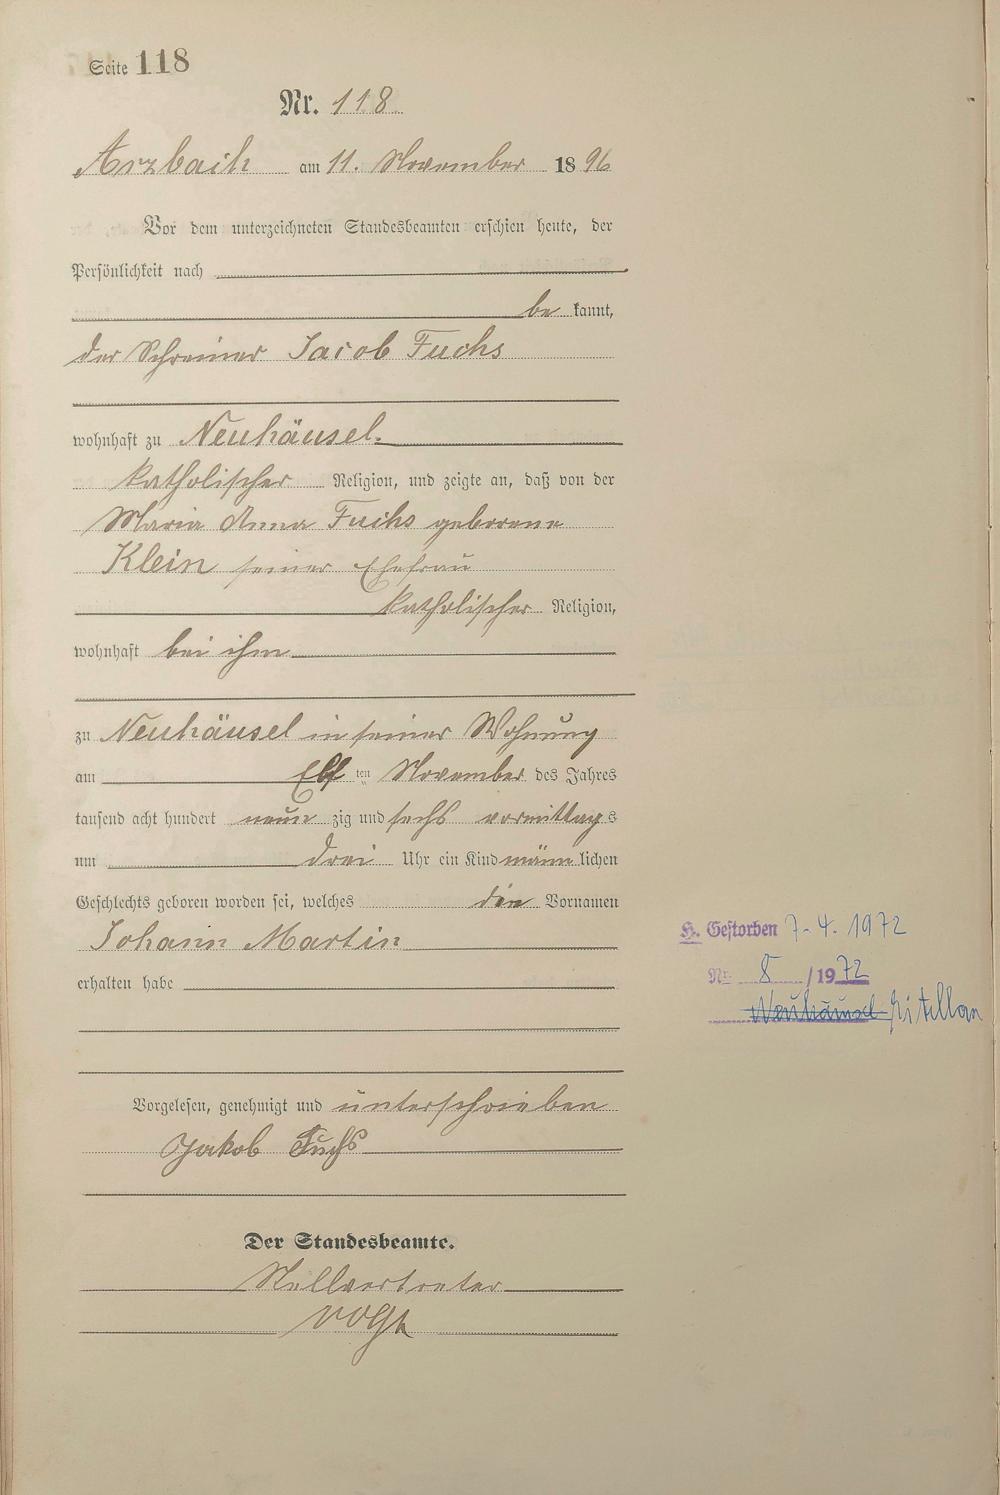 Seite 118
Nr. 118
Arzbach am 11. November 1896
Vor dem unterzeichneten Standesbeamten erschien heute, der
Persönlichkeit nach
bekannt,
der Schreiner Jacob Fuchs
wohnhaft zu Neuhäusel.
katholischer Religion, und zeigte an, daß von der
Maria Anna Fuchs geborene
Klein seiner Ehefrau
katholischer Religion,
wohnhaft bei ihm
zu Neuhäusel in seiner Wohnung
am Elf ten November des Jahres
tausend acht hundert neun zig und sechs vormittags
um drei Uhr ein Kind männlichen
Geschlechts geboren worden sei, welches die Vornamen
Johann Martin
erhalten habe
H. Gestorben 7-4. 1972
Nr. 8 /1972
Neuhäusel
Vorgelesen, genehmigt und unterschrieben
Jakob Fuchs
Der Standesbeamte.
Stellvertreter
Vogt